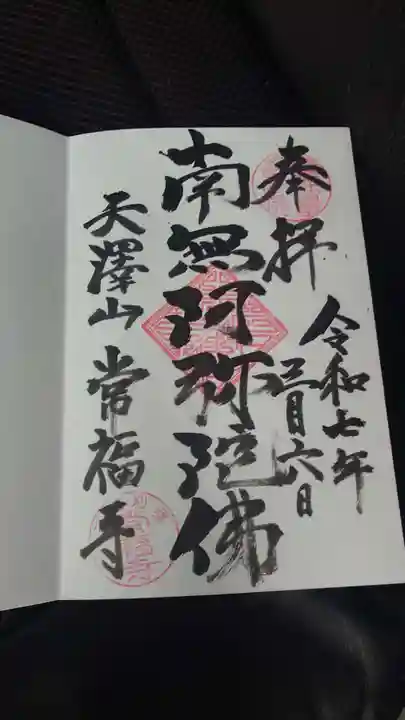 奉拝
令和七年
三月六日
南無阿弥陀佛
天澤山常福寺